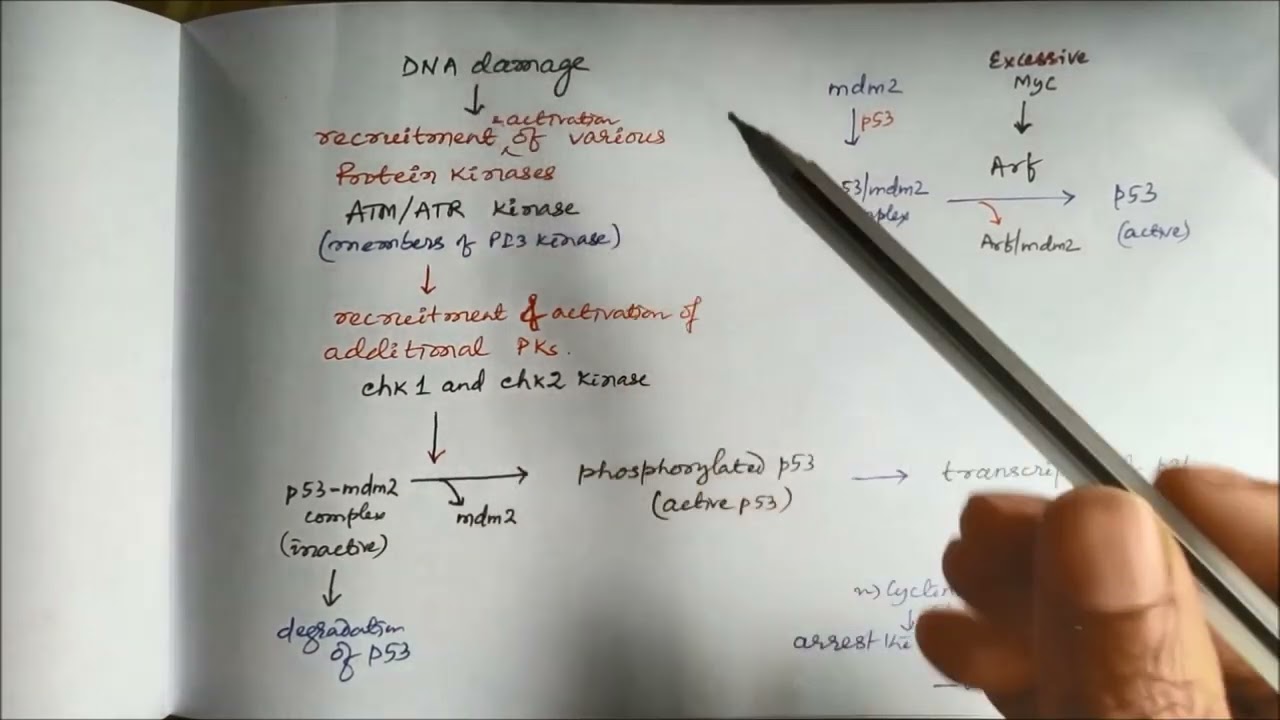 DNA damage
& activation
recruitment of various
Protein Kinases
ATM/ATR Kinase
(members of PI3 kinase)
recruitment & activation of
additional PKs.
chk1 and chk2 kinase
p53-mdm2
complex
(inactive)
mdm2
degradation
of p53
phosphorylated p53
(active p53)
arrest the
mdm2
p53
53/mdm2
plex
Excessive
Myc
Arf
Arf/mdm2
p53
(active)